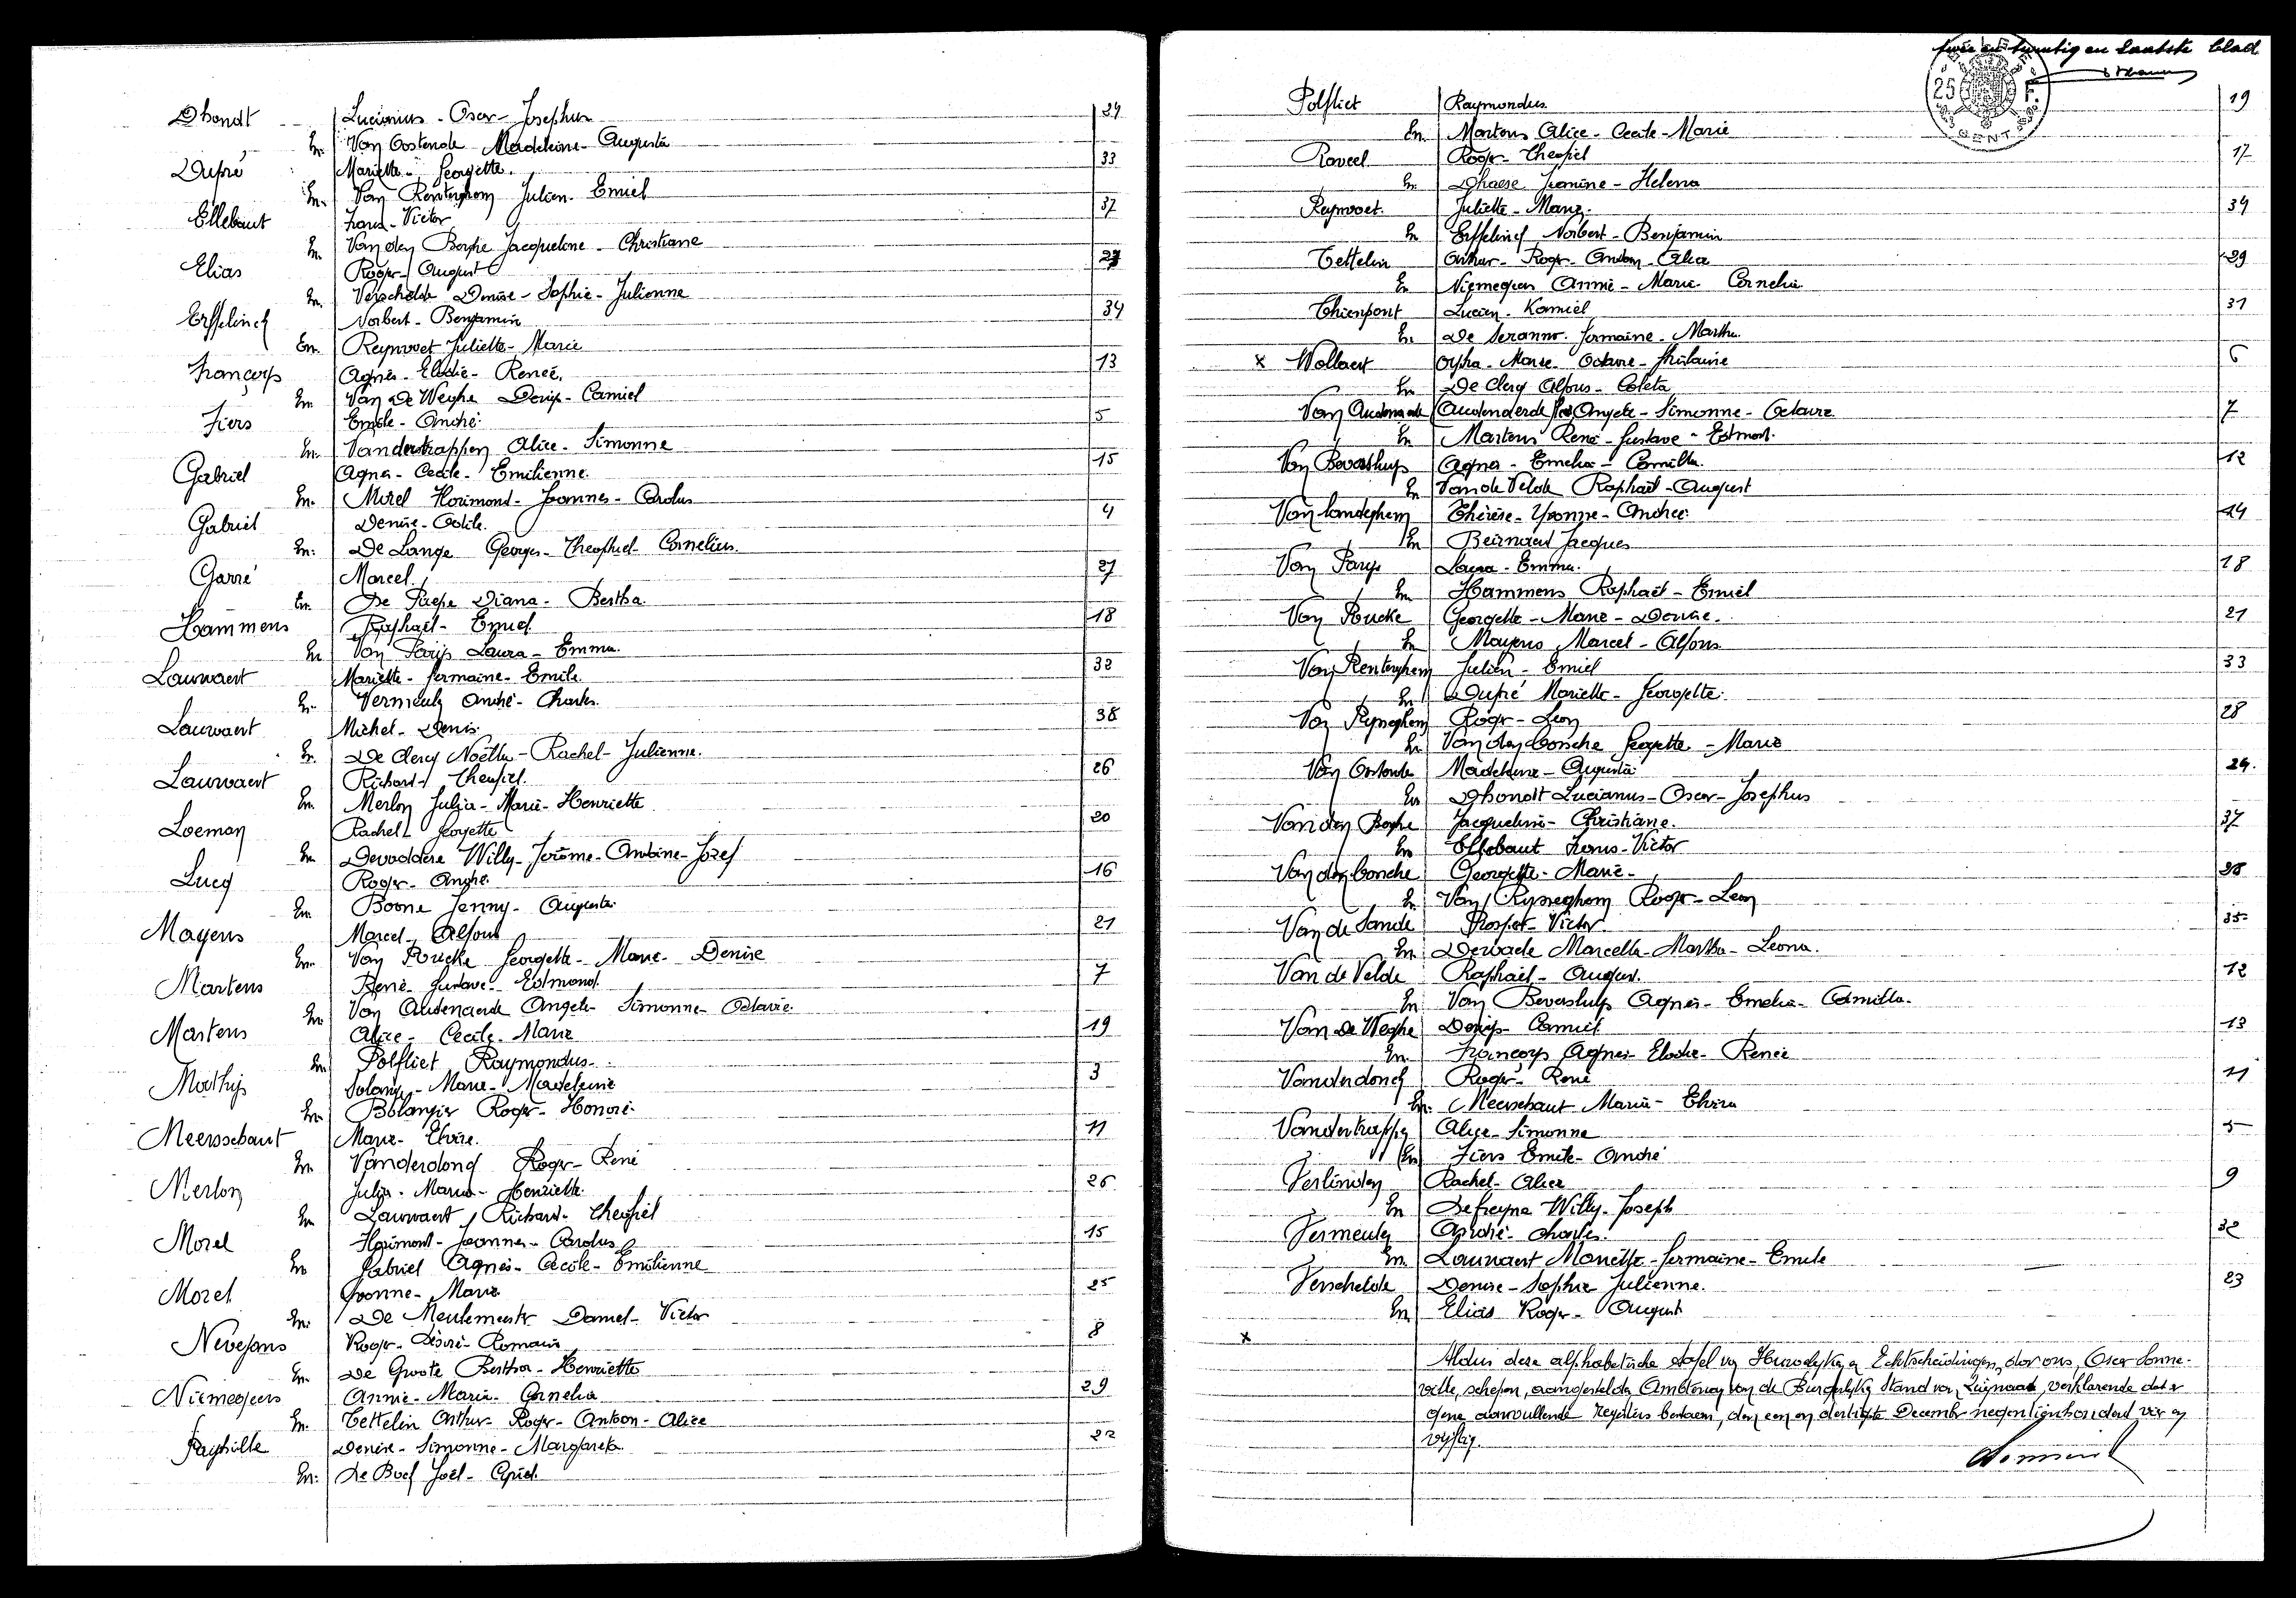 Dhondt Lucianus - Oscar - Josephus 24
En. Van Oostende Madeleine - Augusta
Dupré Mariette - Georgette. 33
En. Van Renterghem Julien - Emiel
Ellebaut Frans - Victor 37
En. Van den Borghe Jacqueline - Christiane
Elias Roger - August 23
En. Verschelde Denise - Sophie - Julienne
Erffelinck Norbert - Benjamin 34
En. Reynvoet Juliette - Marie
Françoys Agnès - Elodie - Reneé. 13
En. Van De Weghe Denijs - Camiel
Fiers Emile - André 5
En. Vanderstrappen Alice - Simonne
Gabriel Agnes - Cecile - Emilienne. 15
En. Morel Florimond - Joannes - Carolus
Gabriel Denise - Odile. 4
En. De Lange Georges - Theophiel - Cornelius.
Garré Marcel. 27
En. De Paepe Diana - Bertha.
Hammens Raphaël - Emiel 18
En Van Parijs Laura - Emma.
Lauwaert Mariette - Germaine - Emile. 32
En. Vermeulen André - Charles.
Lauwaert Michel - Denis. 38
En. De Clercq Noëlla - Rachel - Julienne.
Lauwaert Richard - Theofiel. 26
En. Merlon Julia - Marie - Henriette
Loeman Rachel - Georgette 20
En. Devoddere Willy - Jerôme - Antoine - Jozef
Lucq Roger - André. 16
En. Boone Jenny - Augusta.
Mayens Marcel - Alfons 21
En. Van Poucke Georgette - Marie - Denise
Martens René - Gustave - Edmond. 7
En. Van Audenaerde Angele - Simonne - Octavie.
Martens Alice - Cecile - Marie 19
En. Polfliet Raymondus.
Mathijs Solange - Marie - Madeleine 3
En. Bolangier Roger - Honoré.
Meersschaut Marie - Elvire. 11
En. Vanderdonck Roger - René
Merlon Julia - Marie - Henriette. 26
En. Lauwaert Richard - Theofiel
Morel Florimond - Joannes - Carolus 15
En Gabriel Agnès - Cecile - Emilienne
Morel Yvonne - Marie 25
En. De Meulemeester Daniel - Victor
Nevejans Roger - Désiré - Romain 8
En. De Groote Bertha - Henriette
Niemegeers Annie - Marie - Cornelia 29
En. Tettelin Arthur - Roger - Antoon - Alice
Denise - Simonne - Margareta 22
En. De Buck Joël - Cyriel.
twee en twintig en laatste blad
25 F.
GENT
Polfliet Raymondus. 19
En. Martens Alice - Cecile - Marie
Raveel Roger - Theofiel 17
En. Dhaese Jeanine - Helena
Reynvoet. Juliette - Marie. 34
En Erffelinck Norbert - Benjamin
Tettelin Arthur - Roger - Antoon - Alice 29
En Niemegeers Annie - Marie Cornelia
Thienpont Lucien - Kamiel 31
En. De Seranno Germaine - Martha.
x Wollaert Orpha - Marie - Octavie - Ghislaine 6
En. De Clercq Alfons - Coleta
Van Audenaerde Angele - Simonne - Octavie 7
En Martens René - Gustave - Edmond.
Van Beversluys Agnes - Emelia - Camilla. 12
En Van de Velde Raphaël - August
Van Landeghem Thérèse - Yvonne - Andrée. 14
En Beirnaert Jacques
Van Parijs Laura - Emma. 18
En. Hammens Raphaël - Emiel
Van Poucke Georgette - Marie - Denise. 21
En. Mayens Marcel - Alfons
Van Renterghem Julien - Emiel 33
En Dupré Mariette - Georgette.
Van Rysseghem Roger - Leon 28
En. Van den Bossche Georgette - Marie
Van Oostende Madeleine - Augusta 24.
En Dhondt Lucianus - Oscar - Josephus
Van den Borghe Jacqueline - Christiane. 37
En Ellebaut Frans - Victor
Van den Bossche Georgette - Marie - 28
En Van Rysseghem Roger - Leon
Van de Sande Prosper - Victor. 35
En. Dewaele Marcella - Martha - Leona.
Van de Velde Raphaël - August. 12
En Van Beversluys Agnès - Emelia - Camilla.
Van De Weghe Denijs - Camiel 13
En. Françoys Agnes - Elodie - Renée
Vanderdonck Roger - René 11
En. Meersschaut Marie - Elvira
Vanderstrappen Alice - Simonne 5
En Fiers Emile - André
Verlinden Rachel - Alice 9
En Defreyne Willy - Joseph
Vermeulen André - Charles. 32
En. Lauwaert Mariette - Germaine - Emile
Verschelde Denise - Sophie Julienne. 23
En Elias Roger - August
x
Aldus deze alphabetische tafel van Huwelyken en Echtscheidingen, door ons, Oscar Donne-
ville, schepen, aangestelden Ambtenaar van de Burgerlyken Stand van Zwijnaarde, verklarende dat er
geene aanvullende registers bestaan, den een en dertigste December negentienhonderd vier en
vijftig.